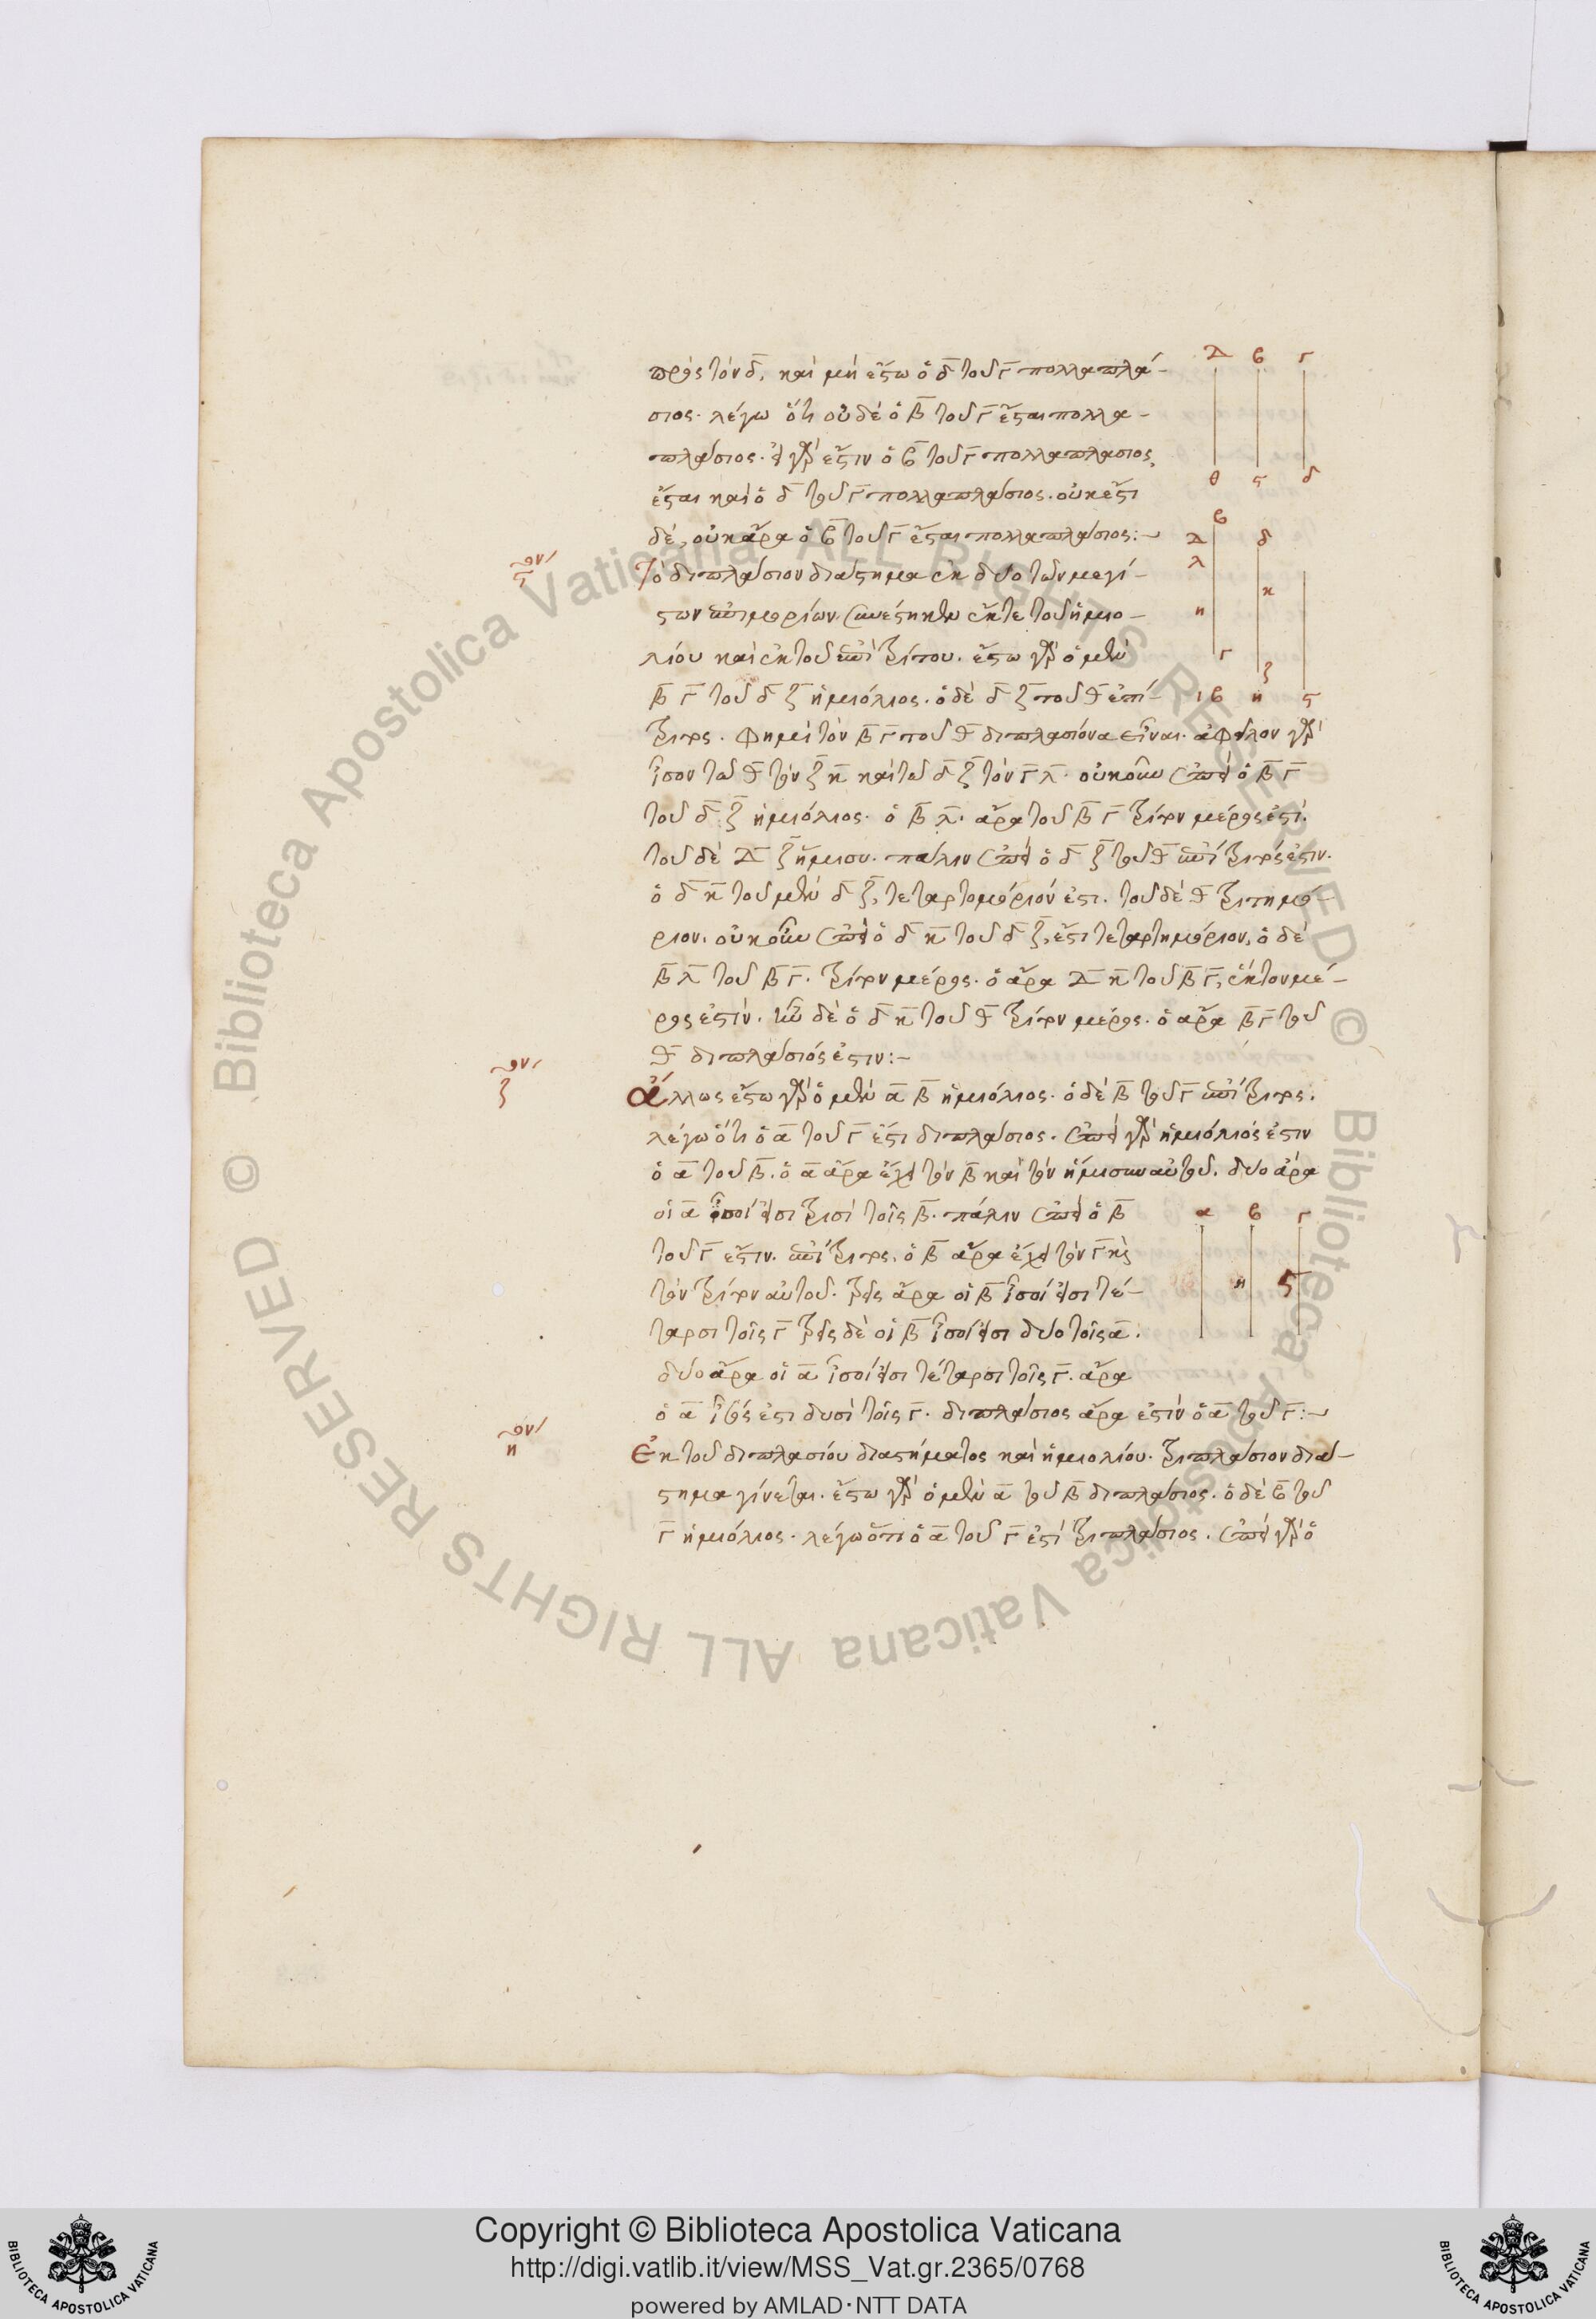 πρὸς τὸν δ̅, καὶ μὴ ἔστω ὁ δ̅ τοῦ γ̅ πολλαπλά-
σιος. λέγω ὅτι οὐδὲ ὁ β̅ τοῦ γ̅ ἔσται πολλα-
πλάσιος. εἰ γὰρ ἐστιν ὁ β̅ τοῦ γ̅ πολλαπλασιος,
ἔσται καὶ ὁ δ̅ τοῦ γ̅ πολλαπλάσιος. οὐκ ἔστι
δέ, οὐκ ἄρα ὁ β̅ τοῦ γ̅ ἔσται πολλαπλάσιος:~
Τὸ διπλάσιον διάστημα ἐκ δύο τῶν μεγί-
στων ἐπιμορίων. συνέστηκεν ἔκ τε τοῦ ἡμιο-
λίου καὶ ἐκ τοῦ ἐπιτρίτου. ἔστω γὰρ ὁ μὲν
β̅ γ̅ τοῦ δ̅ ζ̅ ἡμιόλιος. ὁ δὲ δ̅ ζ̅ τοῦ θ̅ ἐπί-
τριτος. φημὶ τὸν β̅ γ̅ τοῦ θ̅ διπλασιόνα εἶναι. ἀφεῖλον γὰρ
ἴσον τῶ θ̅ τὸν ζ̅ κ̅ καὶ τῶ δ̅ ζ̅ τὸν γ̅ λ̅. οὐκοῦν ἐπεὶ ὁ β̅ γ̅
τοῦ δ̅ ζ̅ ἡμιόλιος. ὁ β̅ λ̅. ἄρα τοῦ β̅ γ̅ τρίτον μέρος ἐστί.
τοῦ δὲ Δ̅ ζ̅ ἥμισυ. πάλιν ἐπεὶ ὁ δ̅ ζ̅ τοῦ θ̅ ἐπίτριτός ἐστιν.
ὁ δ̅ κ̅ τοῦ μὲν δ̅ ζ̅, τεταρτομόριόν ἐστι. τοῦ δὲ θ̅ τριτημό-
ριον. οὐκοῦν ἐπεὶ ὁ δ̅ κ̅ τοῦ δ̅ ζ̅, ἐστι τεταρτημόριον, ὁ δὲ
β̅ λ̅ τοῦ β̅ γ̅. τρίτον μέρος. ὁ ἄρα Δ̅ κ̅ τοῦ β̅ γ̅, ἕκτον μέ-
ρος ἐστίν. ἦν δὲ ὁ δ̅ κ̅ τοῦ θ̅ τρίτον μέρος. ὁ ἄρα β̅ γ̅ τοῦ
θ̅ διπλάσιός ἐστιν:-
Ἄλλως ἔστω γὰρ ὁ μὲν α̅ β̅ ἡμιόλιος. ὁ δὲ β̅ τοῦ γ̅ ἐπίτριτος.
λέγω ὅτι ὁ α̅ τοῦ γ̅ ἔστι διπλάσιος. ἐπεὶ γὰρ ἡμιόλιός ἐστιν
ὁ α̅ τοῦ β̅. ὁ α̅ ἄρα ἔχει τὸν β̅ καὶ τὸν ἥμισυν αὐτοῦ. δύο ἄρα
οἱ α̅ ἴσοί εἰσι τρισὶ τοῖς β̅. πάλιν ἐπεὶ ὁ β̅
τοῦ γ̅ ἐστιν. ἐπίτριτος. ὁ β̅ ἄρα ἔχει τὸν γ̅ καὶ
τὸν τρίτον αὐτοῦ. τρεῖς ἄρα οἱ β̅ ἴσοί εἰσι τέ-
ταρσι τοῖς γ̅ τρεῖς δὲ οἱ β̅ ἴσοί εἰσι δύο τοῖς α̅.
δύο ἄρα οἱ α̅ ἴσοί εἰσι τέταρσι τοῖς γ̅. ἄρα
ὁ α̅ ἴσος ἐστι δυσὶ τοῖς γ̅. διπλάσιος ἄρα ἐστὶν ὁ α̅ τοῦ γ̅:~
Ἐκ τοῦ διπλασίου διαστήματος καὶ ἡμιολίου. τριπλάσιον διά-
στημα γίνεται. ἔστω γὰρ ὁ μὲν α̅ τοῦ β̅ διπλάσιος. ὁ δὲ β̅ τοῦ
γ̅ ἡμιόλιος. λέγω ὅτι ὁ α̅ τοῦ γ̅ ἐστὶ τριπλάσιος. ἐπεὶ γὰρ ὁ
ϛ
ζ
η
Δ β γ
θ ϛ δ
β
Δ δ
λ
κ
η
γ
ζ
ιβ η ϛ
α β γ
η ϛ
© Biblioteca Apostolica Vaticana ALL RIGHTS RESERVED © Biblioteca Apostolica Vaticana ALL RIGHTS RESERVED
BIBLIOTECA APOSTOLICA VATICANA
Copyright © Biblioteca Apostolica Vaticana
http://digi.vatlib.it/view/MSS_Vat.gr.2365/0768
powered by AMLAD·NTT DATA
BIBLIOTECA APOSTOLICA VATICANA